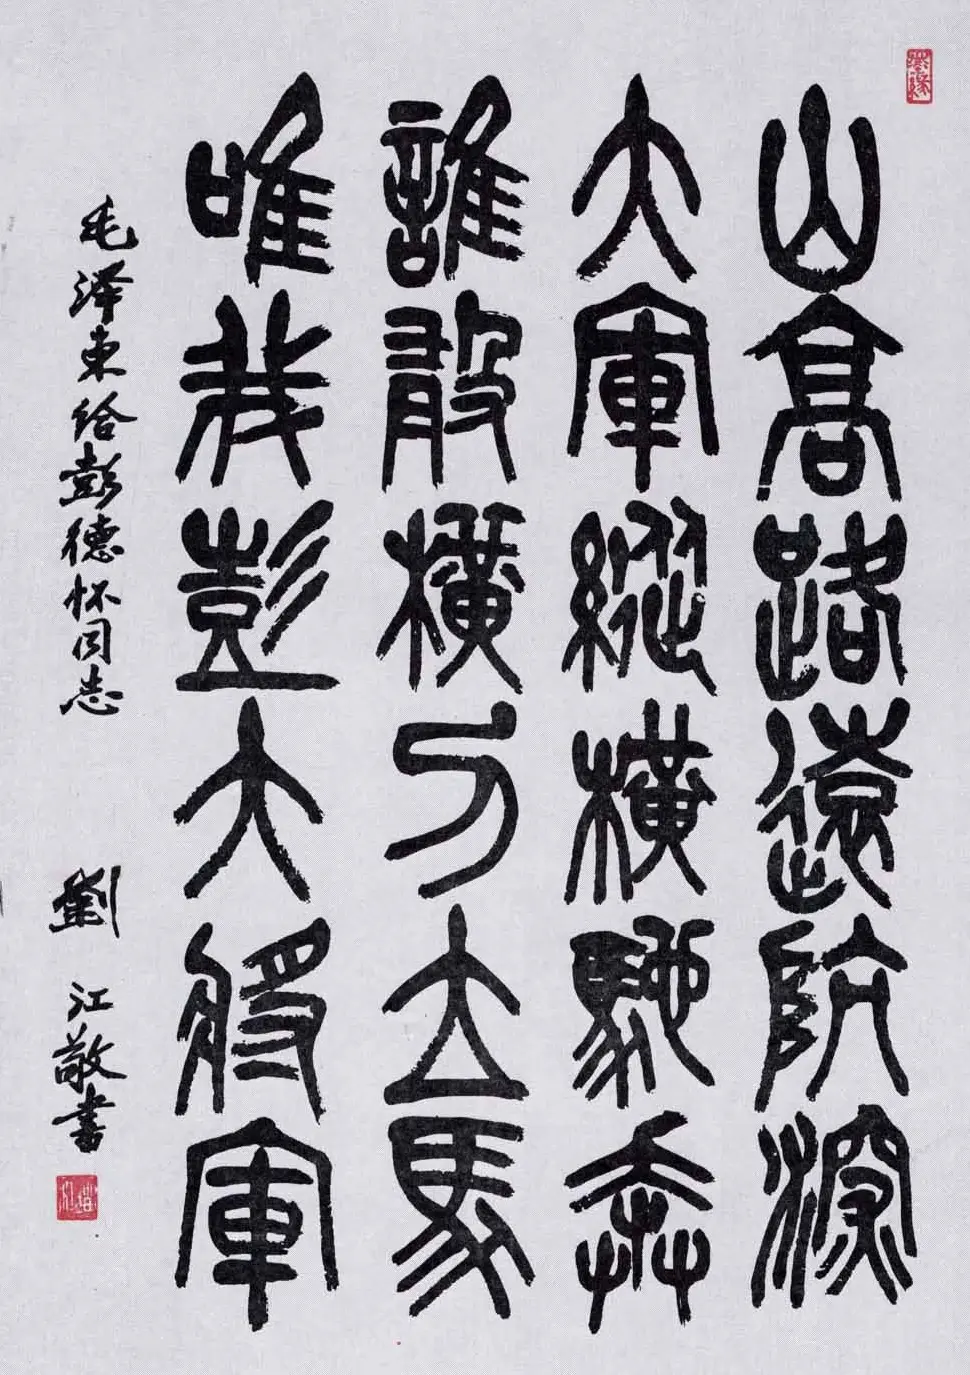 山高路遠阬深
大軍縱橫馳奔
誰敢橫刀立馬
唯我彭大將軍
毛泽東给彭德怀同志
劉江敬書